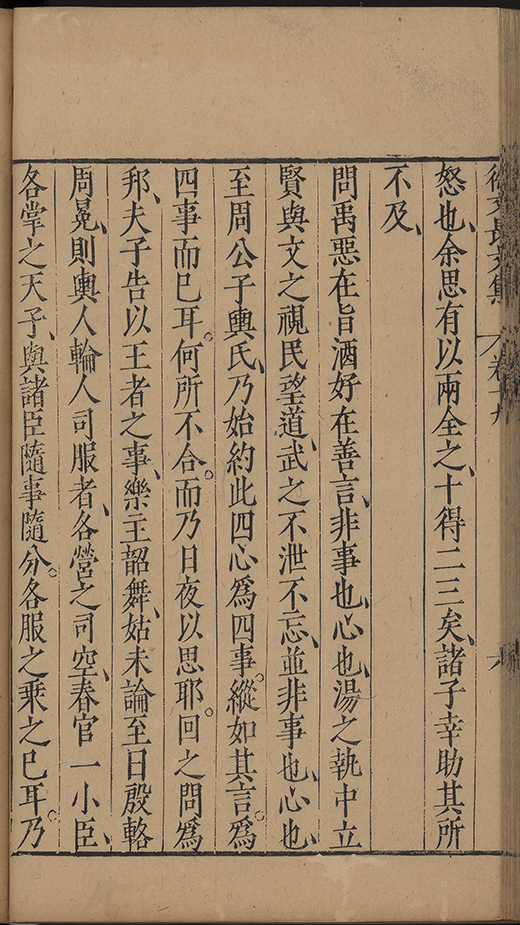 徐文長文集 卷十九
怒也、余思有以兩全之、十得二三矣、諸子幸助其所
不及、
問禹惡在旨酒好在善言、非事也、心也、湯之執中立
賢與文之視民望道、武之不泄不忘、並非事也、心也、
至周公子輿氏、乃始約此四心爲四事。縱如其言。爲
四事而已耳。何所不合。而乃日夜以思耶。回之問爲
邦、夫子告以王者之事、樂主韶舞、姑未論至曰殷輅
周冕、則輿人輪人司服者、各營之司空、春官一小臣、
各掌之天子、與諸臣隨事隨分。各服之乘之已耳乃